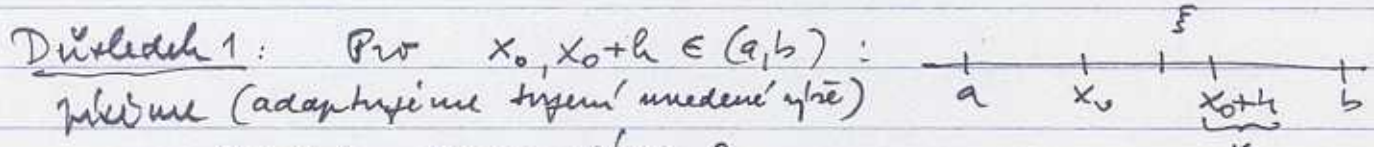 Důsledek 1: Pro x₀, x₀+h ∈ (a,b) :
píšeme (adaptujeme tvrzení uvedené výše)
ξ
a x₀ x₀+h b
x